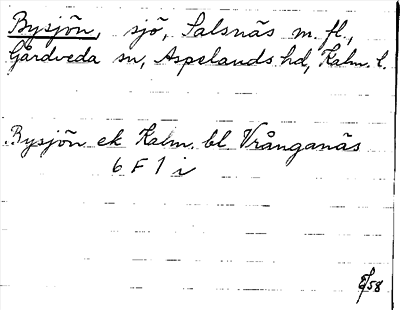 Bysjön, sjö, Salsnäs m. fl.,
Gårdveda sn, Aspelands hd, Kalm. l.
Bysjön ek Kalm. bl Vrånganäs
6 F 1 i
/58